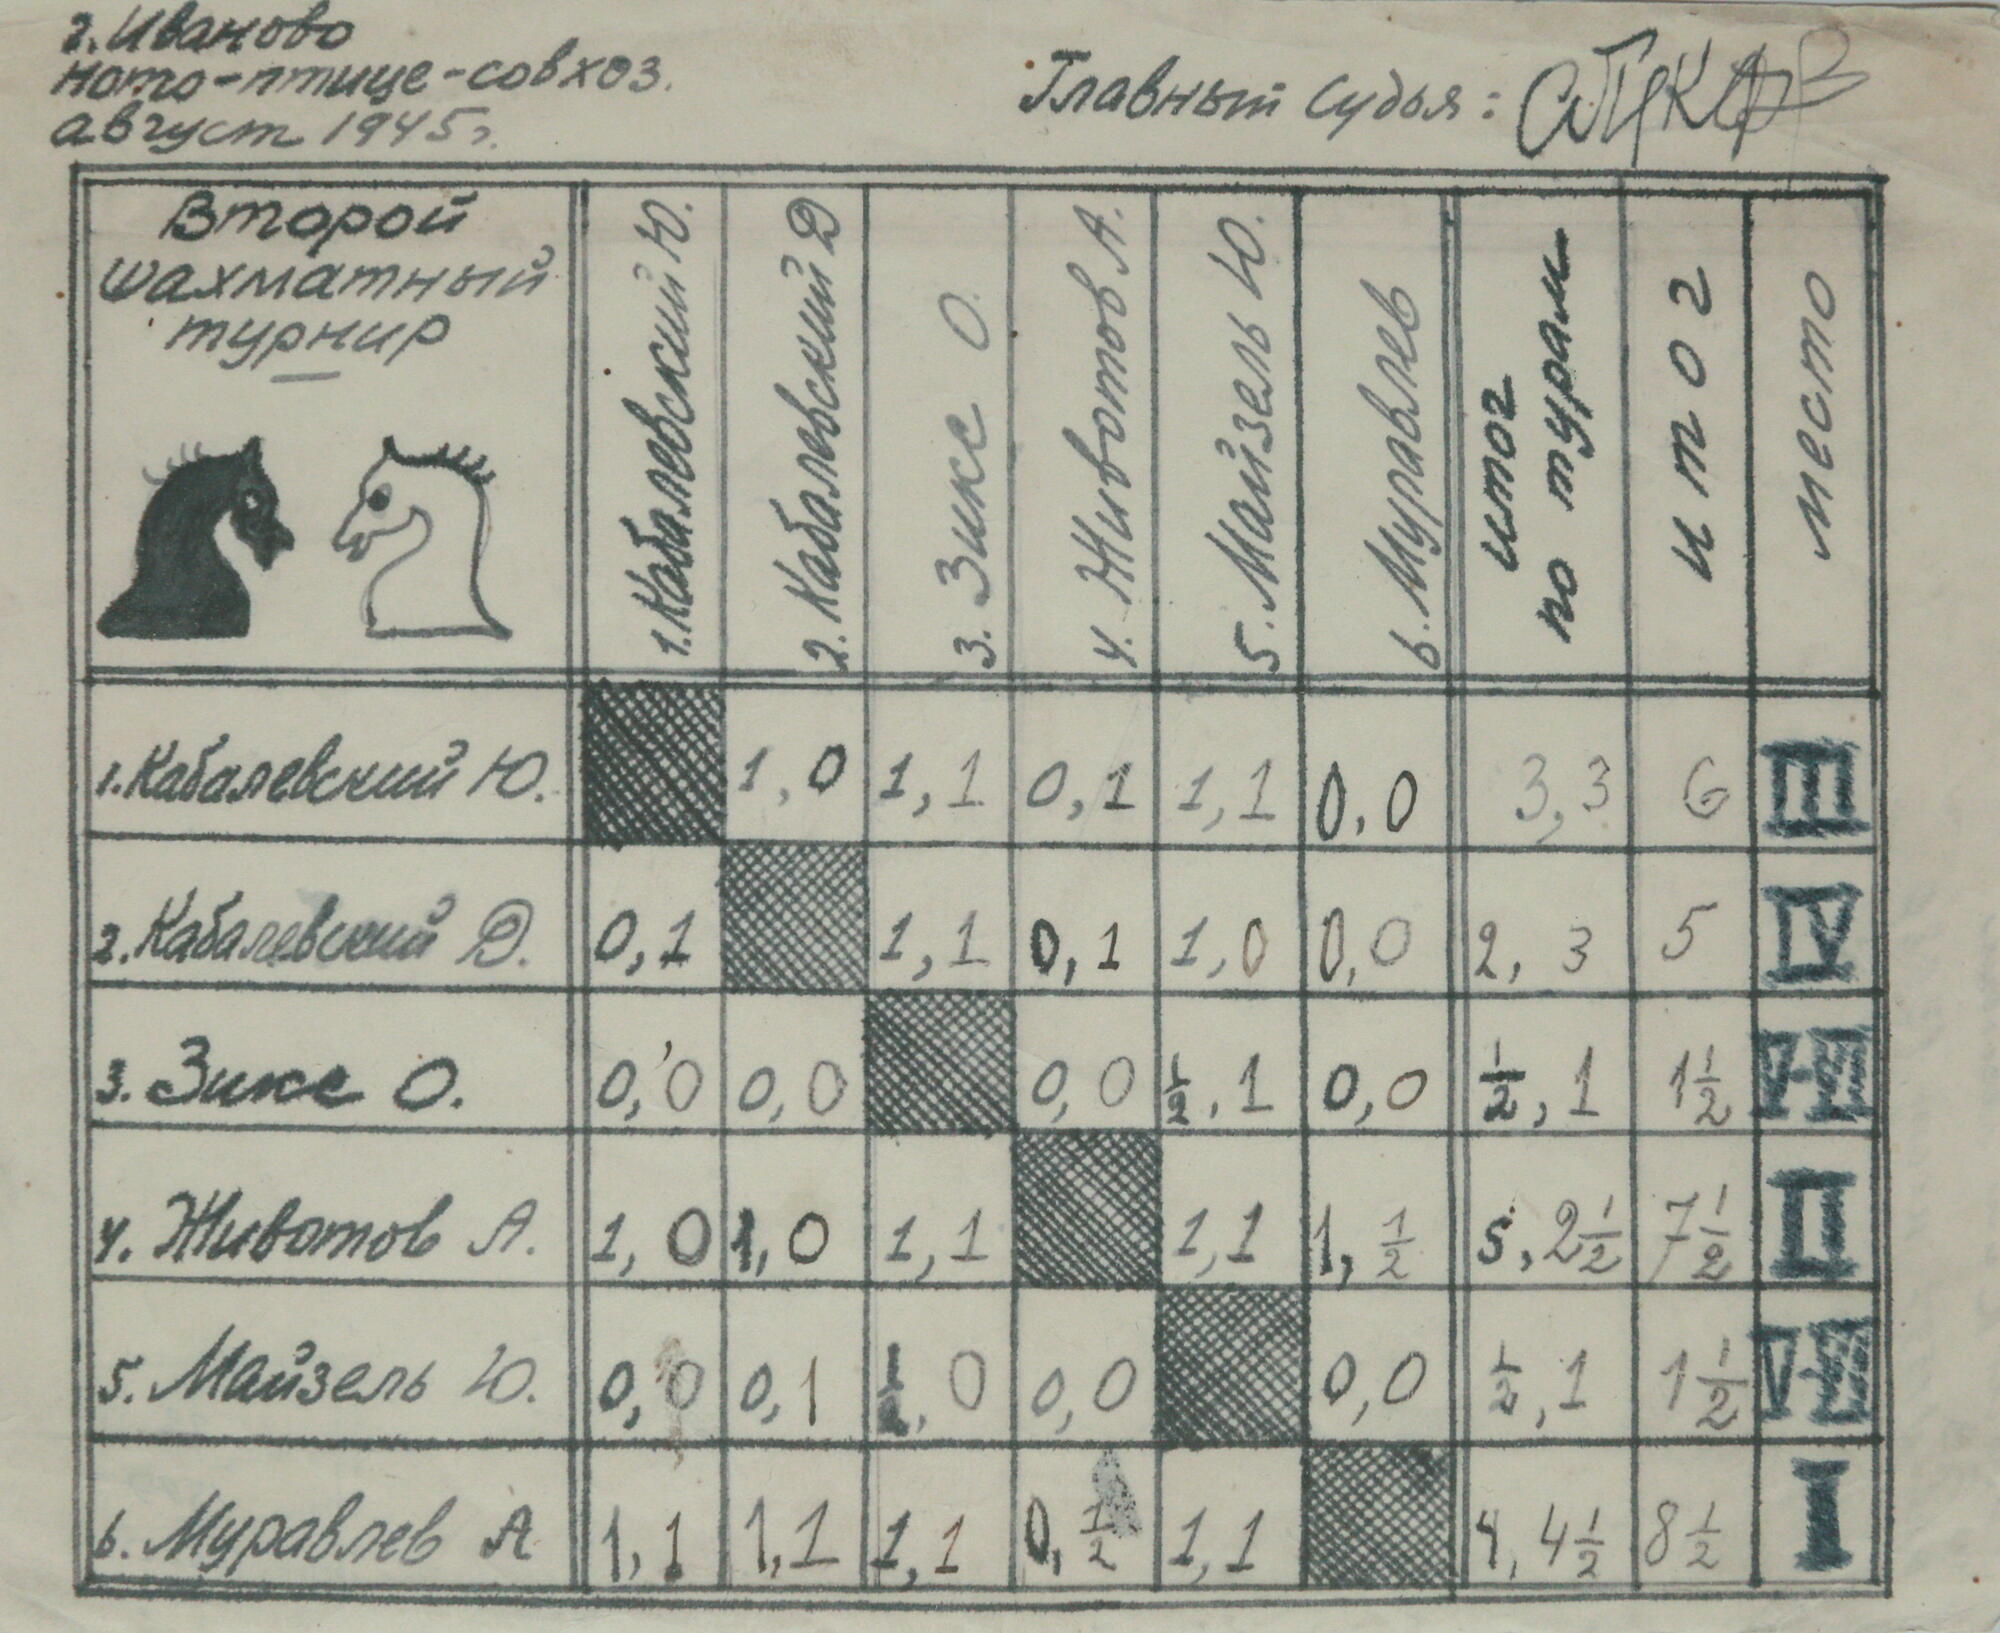 г. Иваново
ното-птице-совхоз.
август 1945г.
Главный Судья:
Второй
шахматный
турнир
1. Кабалевский Ю.
2. Кабалевский Д
3. Зикс О.
4. Животов А.
5. Майзель Ю.
6. Муравлев
итог
по турам
итог
место
1. Кабалевский Ю. 1, 0 1, 1 0, 1 1, 1 0, 0 3, 3 6 III
2. Кабалевский Д. 0, 1 1, 1 0, 1 1, 0 0, 0 2, 3 5 IV
3. Зикс О. 0, 0 0, 0 0, 0 1/2, 1 0, 0 1/2, 1 1 1/2 V-VI
4. Животов А. 1, 0 1, 0 1, 1 1, 1 1, 1/2 5, 2 1/2 7 1/2 II
5. Майзель Ю. 0, 0 0, 1 1/2, 0 0, 0 0, 0 1/2, 1 1 1/2 V-VI
6. Муравлев А 1, 1 1, 1 1, 1 0, 1/2 1, 1 4, 4 1/2 8 1/2 I